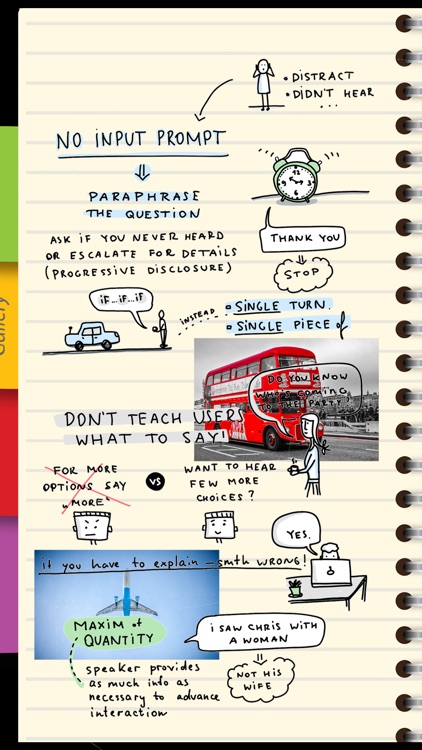 • DISTRACT
• DiDN'T HEAR
...
NO iNPUT PROMPT
PARAPHRASE
THE QUESTION
ASK iF YOU NEVER HEARD
OR ESCALATE FOR DETAILS
(PROGRESSIVE DISCLOSURE)
12
THANK YOU
STOP
iF...iF...iF
iNSTEAD
SINGLE TURN.
SINGLE PIECE of
DO YOU KNOW
WHO'S COMING
TO THE PARTY?
DON'T TEACH USERS
WHAT TO SAY!
FOR MORE
OPTIONS SAY
"MORE"
VS
WANT TO HEAR
FEW MORE
CHOICES?
YES.
if you have to explain – smth WRONG!
MAXIM of
QUANTITY
i SAW CHRIS WITH
A WOMAN
NOT HIS
WiFE
speaker provides
as much info as
necessary to advance
interaction
Gallery